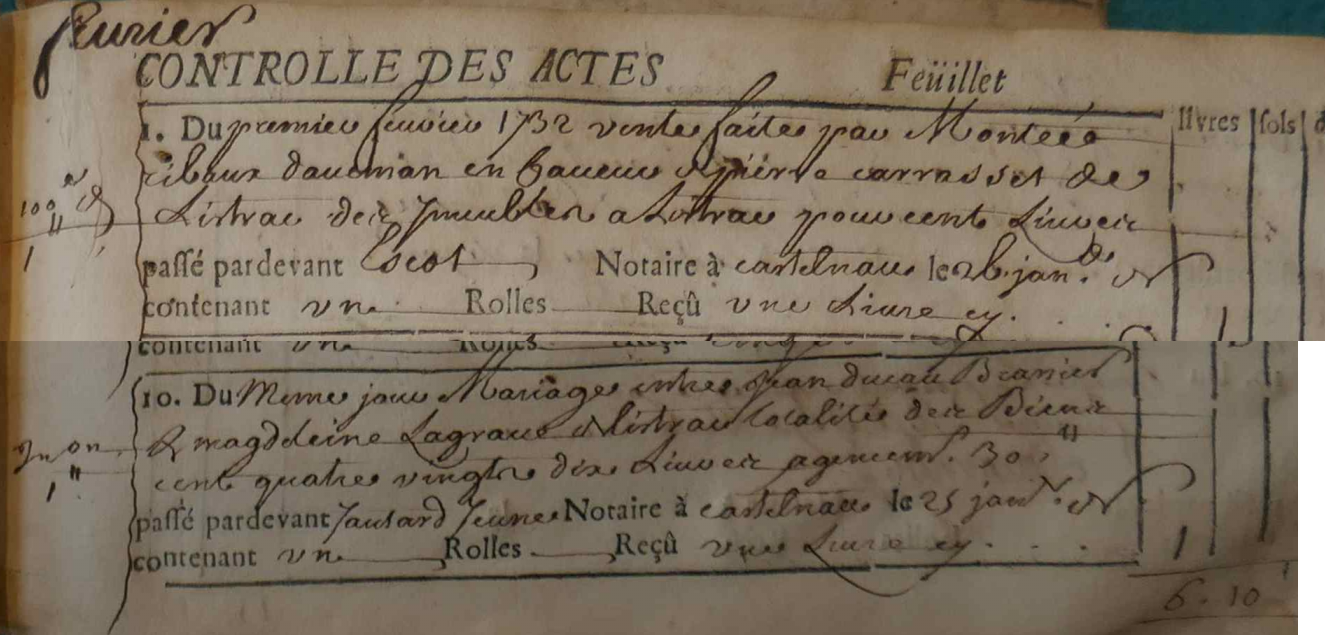 feurier
CONTROLLE DES ACTES Feüillet
livres sols d
1. Du premier feurier 1732 vente faite par
daudman en faueur de pierre carrasset de
100
Listrac des Jmeubles a Listrac pour cent Liures
1
passé pardevant Escot Notaire à castelnau le 26 janr.
contenant vn Rolles Reçû vne Liure cy. 1
contenant vn Rolles Reçû
10. Du Meme jour Mariage entre Jean ducau
& magdeleine Lagraue de listrac totalité des Biens
cent quatre vingts dix Liures agencemt. 30
passé pardevant Jautard Jeune Notaire à castelnau le 25 janr.
contenant vn Rolles Reçû vne Liure cy. 1
6. 10